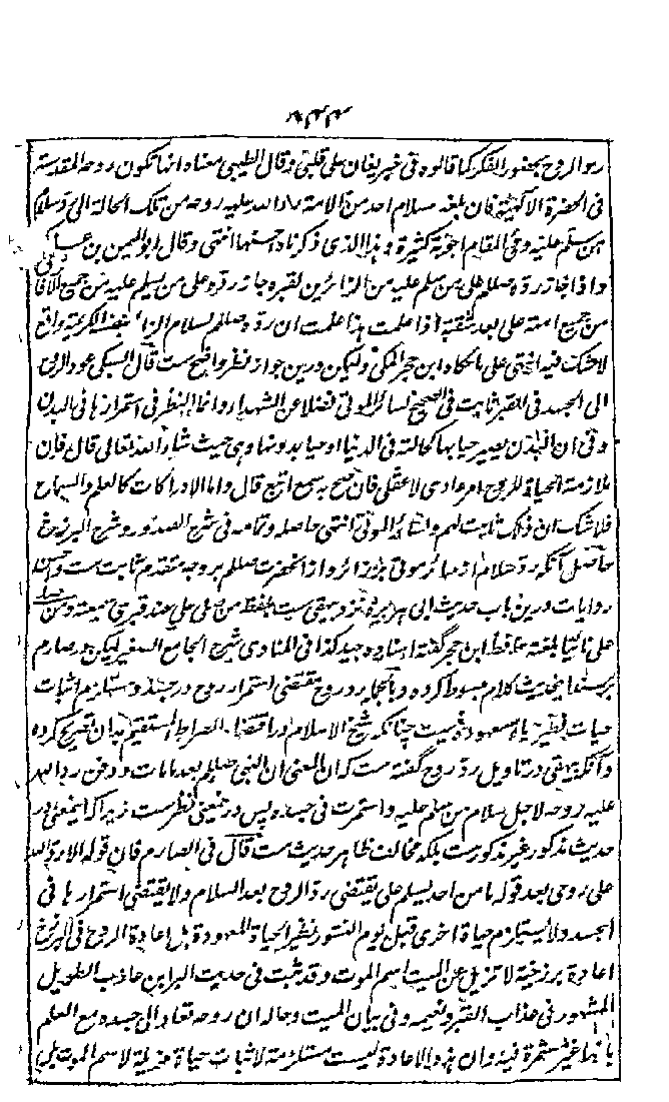 رد الروح بحضور الفکر کما قالوه فی خبر یغان علی قلبی وقال الطیبی معناه انها تکون روحه المقدسة
فی الحضرة الالٰهیة فان بلغه سلام احد من الامة رد الله علیه روحه من تلک الحالة الی رد سلام
من سلم علیه وفی المقام اجوبة کثیرة وهذا الذی ذکرناه احسنها انتهی وقال ابو الیمن بن عساکر
واذا جاز رده صلعم علی من سلم علیه من الزائرین لقبره جاز رده علی من یسلم علیه من جمیع الآفاق
من جمیع امته علی بعد شقته اذا علمت هذا علمت ان رده صلعم لسلام الزائر بنفسه الکریمة واقع
لا شک فیه انتهی علی ما حکاه ابن حجر المکی ولیکن درین جواز نظر واضح ست قال السبکی عود الروح
الی الجسد فی القبر ثابت فی الصحیح لسائر الموتی فضلا عن الشهداء وانما النظر فی استمرارها فی البدن
وفی ان البدن یصیر حیا بها کحالته فی الدنیا او حیا بدونها وهی حیث شاء الله تعالی قال فان
ملازمة الحیاة للروح امر عادی لا عقلی فان صح به سمع اتبع قال واما الادراکات کالعلم والسماع
فلا شک ان ذلک ثابت لهم ولسائر الموتی انتهی حاصله وتمامه فی شرح الصدور وشرح البرزخ
حاصل آنکه رد سلام از سائر موتی بر زائر واز آنحضرت صلعم بروجه متقدم ثابت ست وآنچه
روایات درین باب حدیث ابی هریره نزد بیهقی ست بلفظ من صلی علی عند قبری سمعته ومن صلی
علی نائیا بلغته حافظ ابن حجر گفته اسناده جید کذا فی المناوی شرح الجامع الصغیر لیکن در صارم
برسند این حدیث کلام مبسوط کرده وبالجمله رد روح مقتضی استمرار روح در جسد ومستلزم اثبات
حیات نظیر حیات معهوده نیست چنانکه شیخ الاسلام در اقتضاء الصراط المستقیم بدان تصریح کرده
وآنکه بیهقی در تاویل رد روح گفته ست که ان المعنی ان النبی صلعم بعد ما مات ودفن رد الله
علیه روحه لاجل سلام من سلم علیه واستمرت فی جسده پس درینمعنی نظرست زیراکه اینمعنی در
حدیث مذکور غیر مذکورست بلکه مخالف ظاهر حدیث ست قال فی الصارم فان قوله الا رد الله
علی روحی بعد قوله ما من احد یسلم علی یقتضی رد الروح بعد السلام ولا یقتضی استمرارها فی
الجسد ولا یستلزم حیاة اخری قبل یوم النشور نظیر الحیاة المعهودة بل اعادة الروح فی البرزخ
اعادة برزخیة لا تزیل عن المیت اسم الموت وقد ثبت فی حدیث البراء بن عازب الطویل
المشهور فی عذاب القبر ونعیمه وفی بیان المیت وحاله ان روحه تعاد الی جسده مع العلم
بانها غیر مستمرة فیه وان هذه الاعادة لیست مستلزمة لاثبات حیاة مزیلة لاسم الموت بل